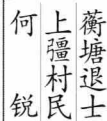 蘅塘退士
上彊村民
何　锐